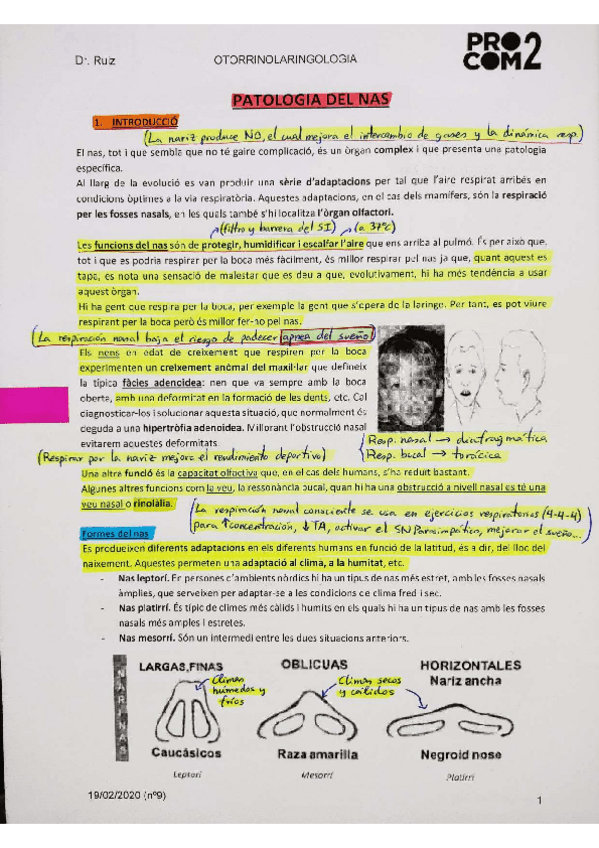 Dr. Ruiz
OTORRINOLARINGOLOGIA
PRO
COM2
PATOLOGIA DEL NAS
1. INTRODUCCIÓ
(La nariz produce NO, el cual mejora el intercambio de gases y la dinámica resp.)
El nas, tot i que sembla que no té gaire complicació, és un òrgan complex i que presenta una patologia
específica.
Al llarg de la evolució es van produir una sèrie d'adaptacions per tal que l'aire respirat arribés en
condicions òptimes a la via respiratòria. Aquestes adaptacions, en el cas dels mamífers, són la respiració
per les fosses nasals, en les quals també s'hi localitza l'òrgan olfactori.
(filtro y barrera del SI) (a 37ºC)
Les funcions del nas són de protegir, humidificar i escalfar l'aire que ens arriba al pulmó. És per això que,
tot i que es podria respirar per la boca més fàcilment, és millor respirar pel nas ja que, quant aquest es
tapa, es nota una sensació de malestar que es deu a que, evolutivament, hi ha més tendència a usar
aquest òrgan.
Hi ha gent que respira per la boca, per exemple la gent que s'opera de la laringe. Per tant, es pot viure
respirant per la boca però és millor fer-ho pel nas.
(La respiración nasal baja el riesgo de padecer apnea del sueño)
Els nens en edat de creixement que respiren per la boca
experimenten un creixement anòmal del maxil·lar que defineix
la típica fàcies adenoidea: nen que va sempre amb la boca
oberta, amb una deformitat en la formació de les dents, etc. Cal
diagnosticar-los i solucionar aquesta situació, que normalment és
deguda a una hipertròfia adenoidea. Millorant l'obstrucció nasal
evitarem aquestes deformitats.
Resp. nasal → diafragmática
Resp. bucal → torácica
(Respirar por la nariz mejora el rendimiento deportivo)
Una altre funció és la capacitat olfactiva que, en el cas dels humans, s'ha reduit bastant.
Algunes altres funcions com la veu, la ressonància bucal, quan hi ha una obstrucció a nivell nasal es té una
veu nasal o rinolàlia.
(La respiración nasal consciente se usa en ejercicios respiratorios (4-4-4)
para ↑concentración, ↓TA, activar el SNParasimpático, mejorar el sueño...
Formes del nas
Es produeixen diferents adaptacions en els diferents humans en funció de la latitud, és a dir, del lloc del
naixement. Aquestes permeten una adaptació al clima, a la humitat, etc.
- Nas leptorí. En persones d'ambients nòrdics hi ha un tipus de nas més estret, amb les fosses nasals
àmplies, que serveixen per adaptar-se a les condicions de clima fred i sec.
- Nas platirrí. És típic de climes més càlids i humits en els quals hi ha un tipus de nas amb les fosses
nasals més amples i estretes.
- Nas mesorrí. Són un intermedi entre les dues situacions anteriors.
NARINAS
LARGAS,FINAS
OBLICUAS
HORIZONTALES
Nariz ancha
Climas
húmedos y
fríos
Climas secos
y cálidos
Caucásicos
Raza amarilla
Negroid nose
Leptorí
Mesorrí
Platirrí
19/02/2020 (nº9)
1